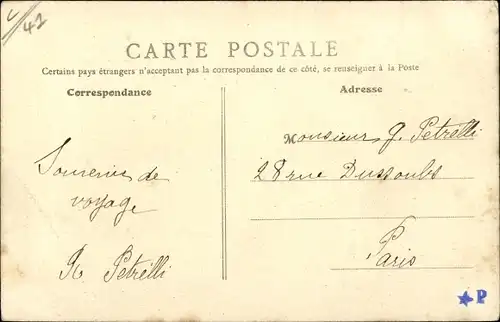 42
CARTE POSTALE
Certains pays étrangers n'acceptant pas la correspondance de ce côté, se renseigner à la Poste
Correspondance
Adresse
Souvenir de
voyage
R Petrelli
Monsieur G. Petrelli
28 rue Dussoubs
Paris
★P